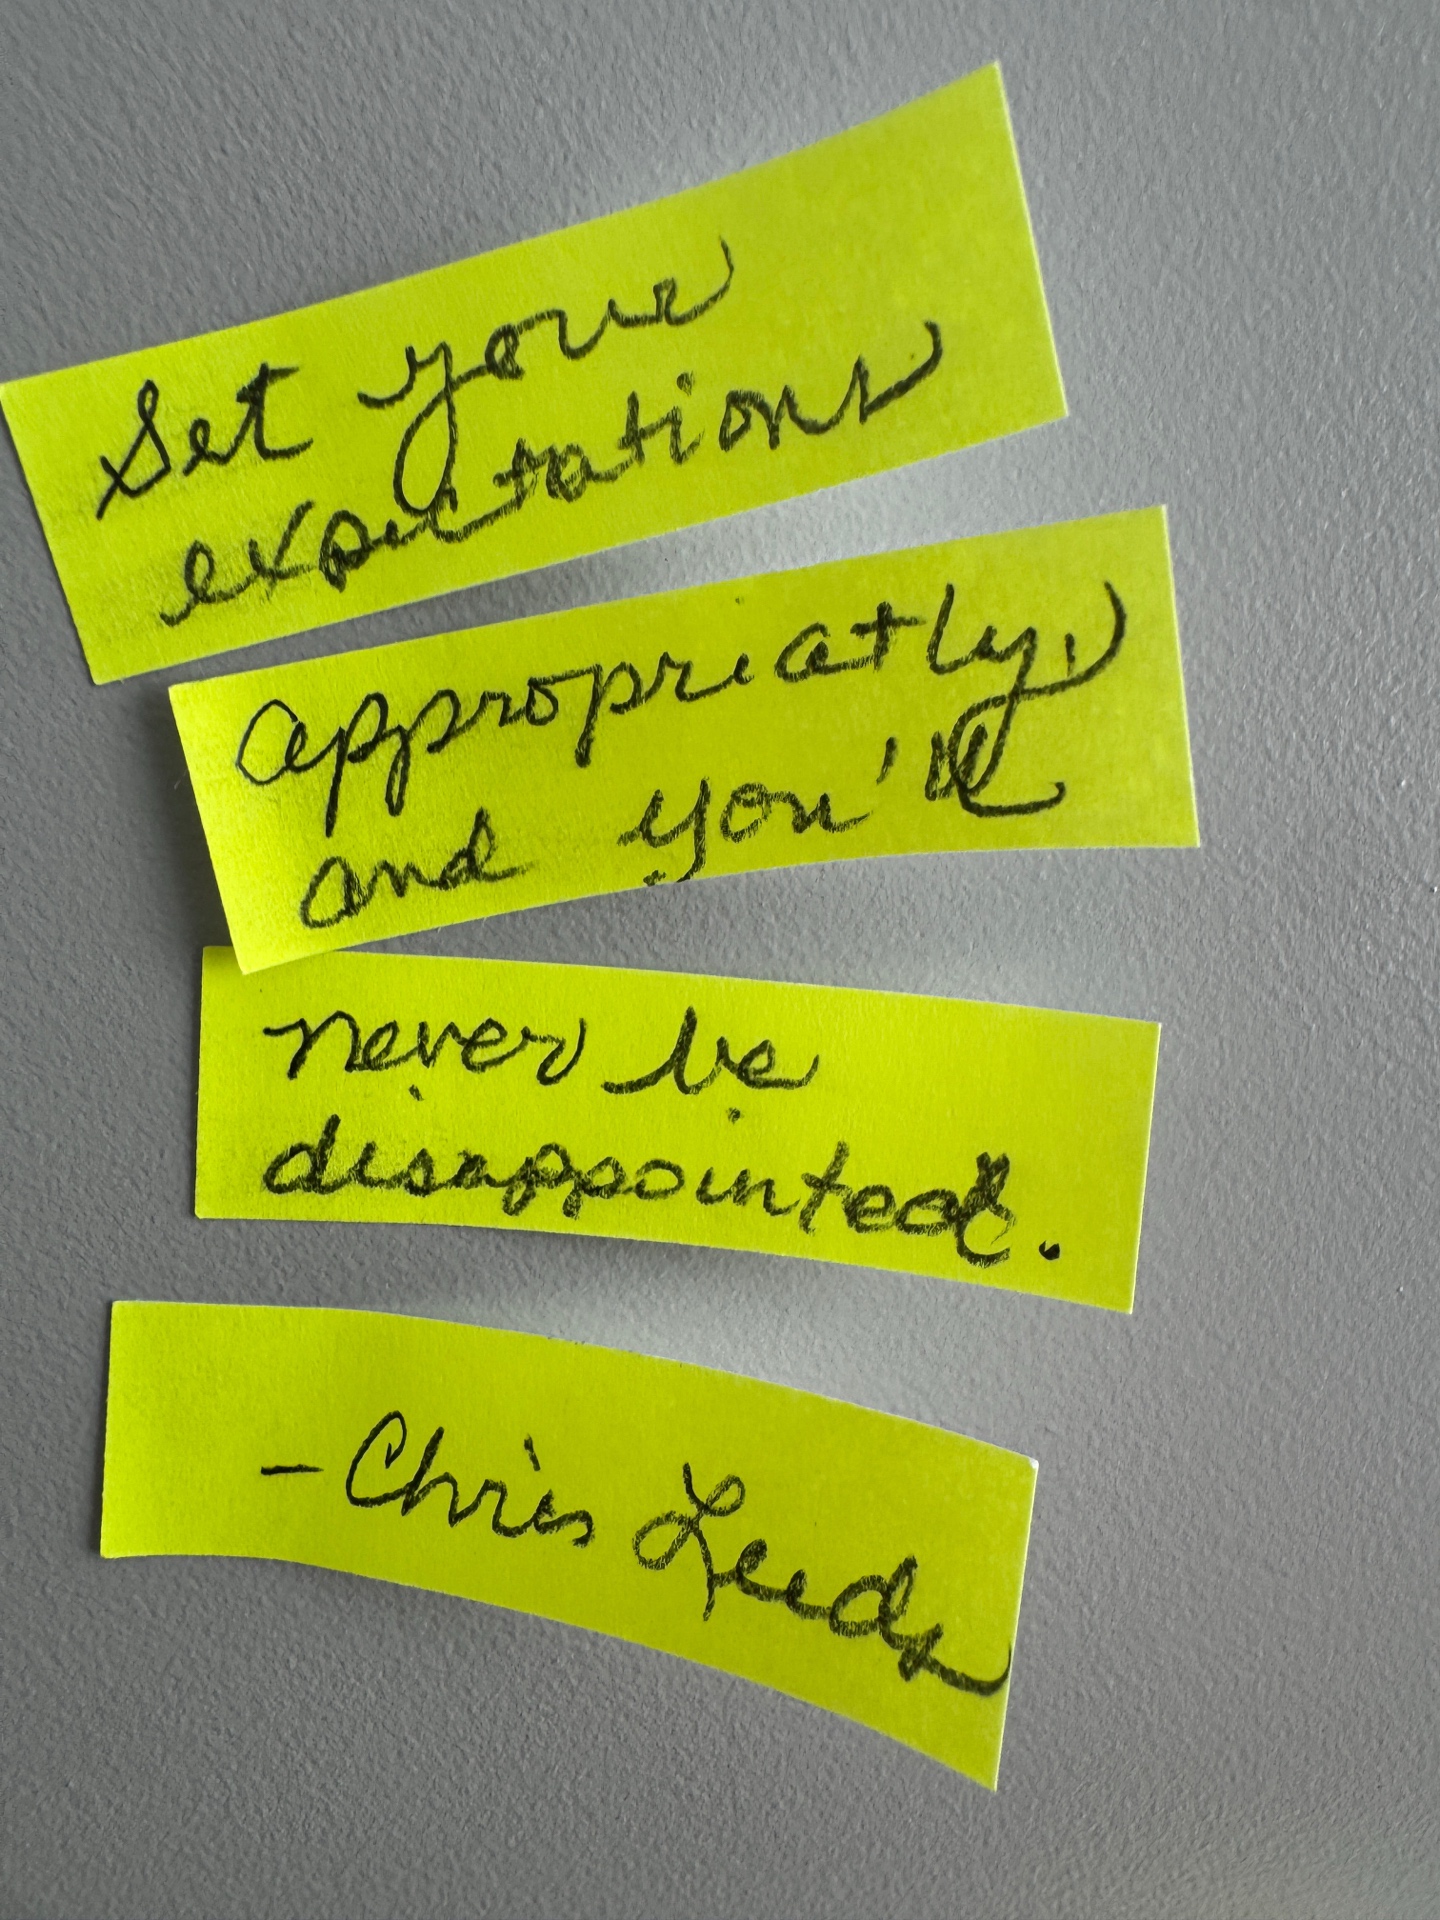 Set your
expectations
appropriatly,
and you'll
never be
disappointed.
- Chris Leeds